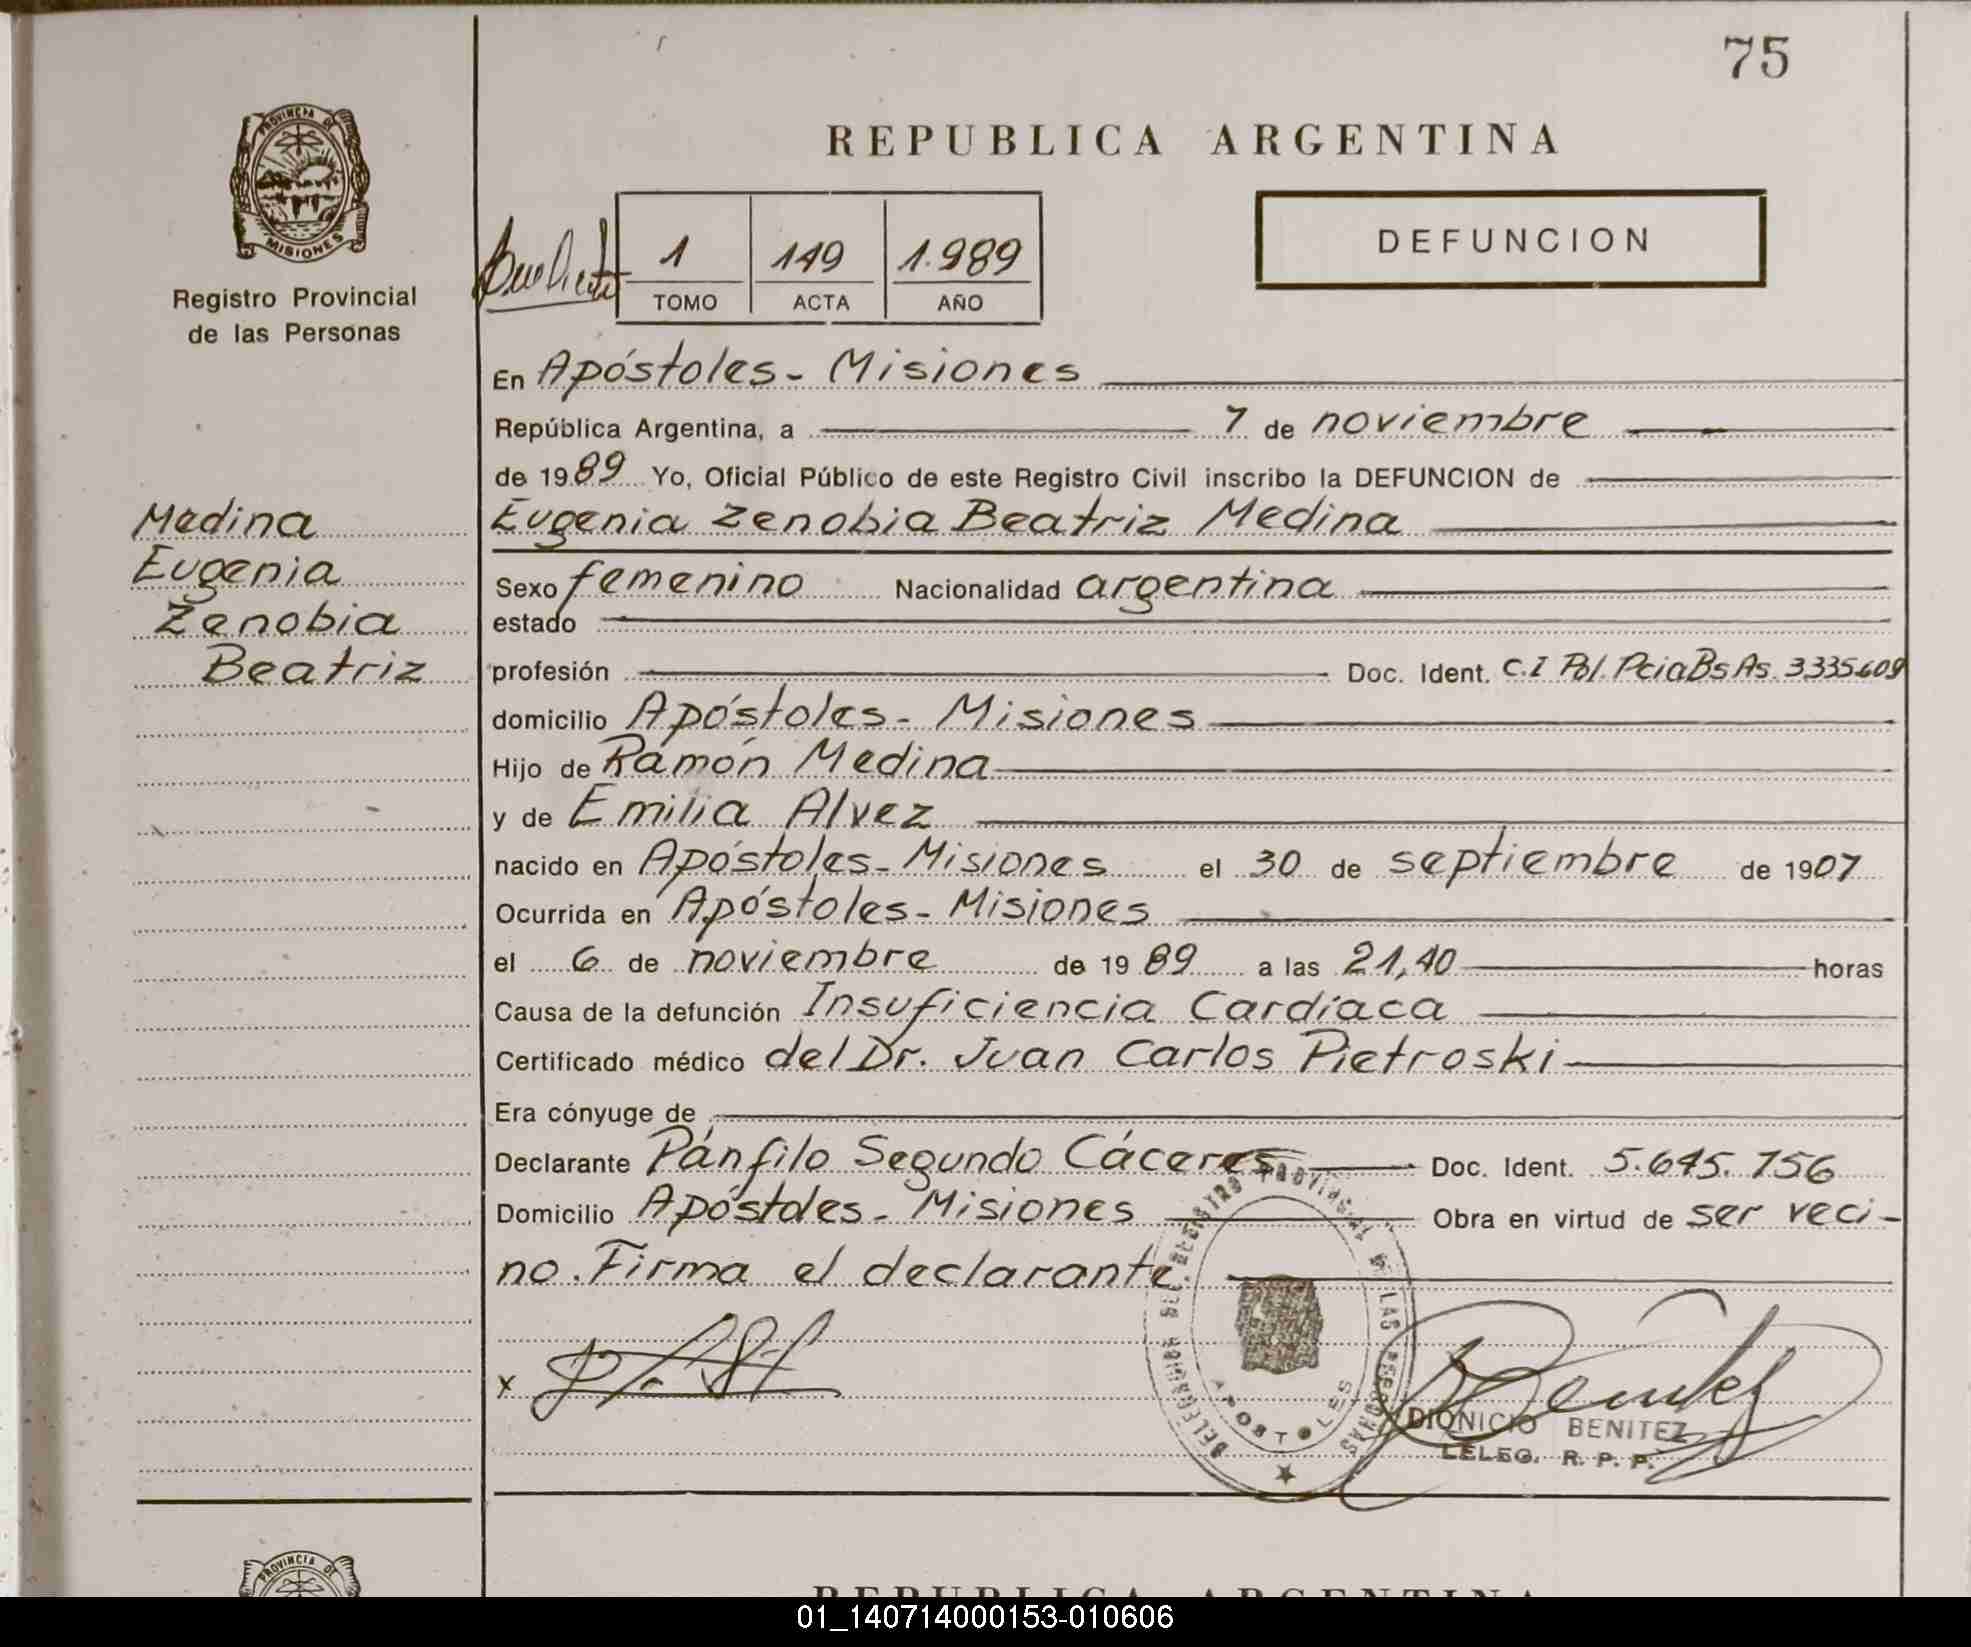 75
PROVINCIA DE
MISIONES
Registro Provincial
de las Personas
REPUBLICA ARGENTINA
DEFUNCION
1 149 1.989
TOMO ACTA AÑO
En Apóstoles - Misiones
República Argentina, a 7 de noviembre
de 1989 Yo, Oficial Público de este Registro Civil inscribo la DEFUNCION de
Eugenia Zenobia Beatriz Medina
Medina
Eugenia
Zenobia
Beatriz
Sexo femenino Nacionalidad argentina
estado
profesión Doc. Ident. C.I Pol. Pcia Bs As. 3335609
domicilio Apóstoles - Misiones
Hijo de Ramón Medina
y de Emilia Alvez
nacido en Apóstoles - Misiones el 30 de septiembre de 1907
Ocurrida en Apóstoles - Misiones
el 6 de noviembre de 1989 a las 21,40 horas
Causa de la defunción Insuficiencia Cardíaca
Certificado médico del Dr. Juan Carlos Pietroski
Era cónyuge de
Declarante Pánfilo Segundo Cáceres Doc. Ident. 5.645.756
Domicilio Apóstoles - Misiones Obra en virtud de ser veci-
no. Firma el declarante
x
REGISTRO PROVINCIAL DE LAS PERSONAS
APOSTOLES
DIONICIO BENITEZ
DELEG. R. P. P.
PROVINCIA DE
REPUBLICA ARGENTINA
01_140714000153-010606